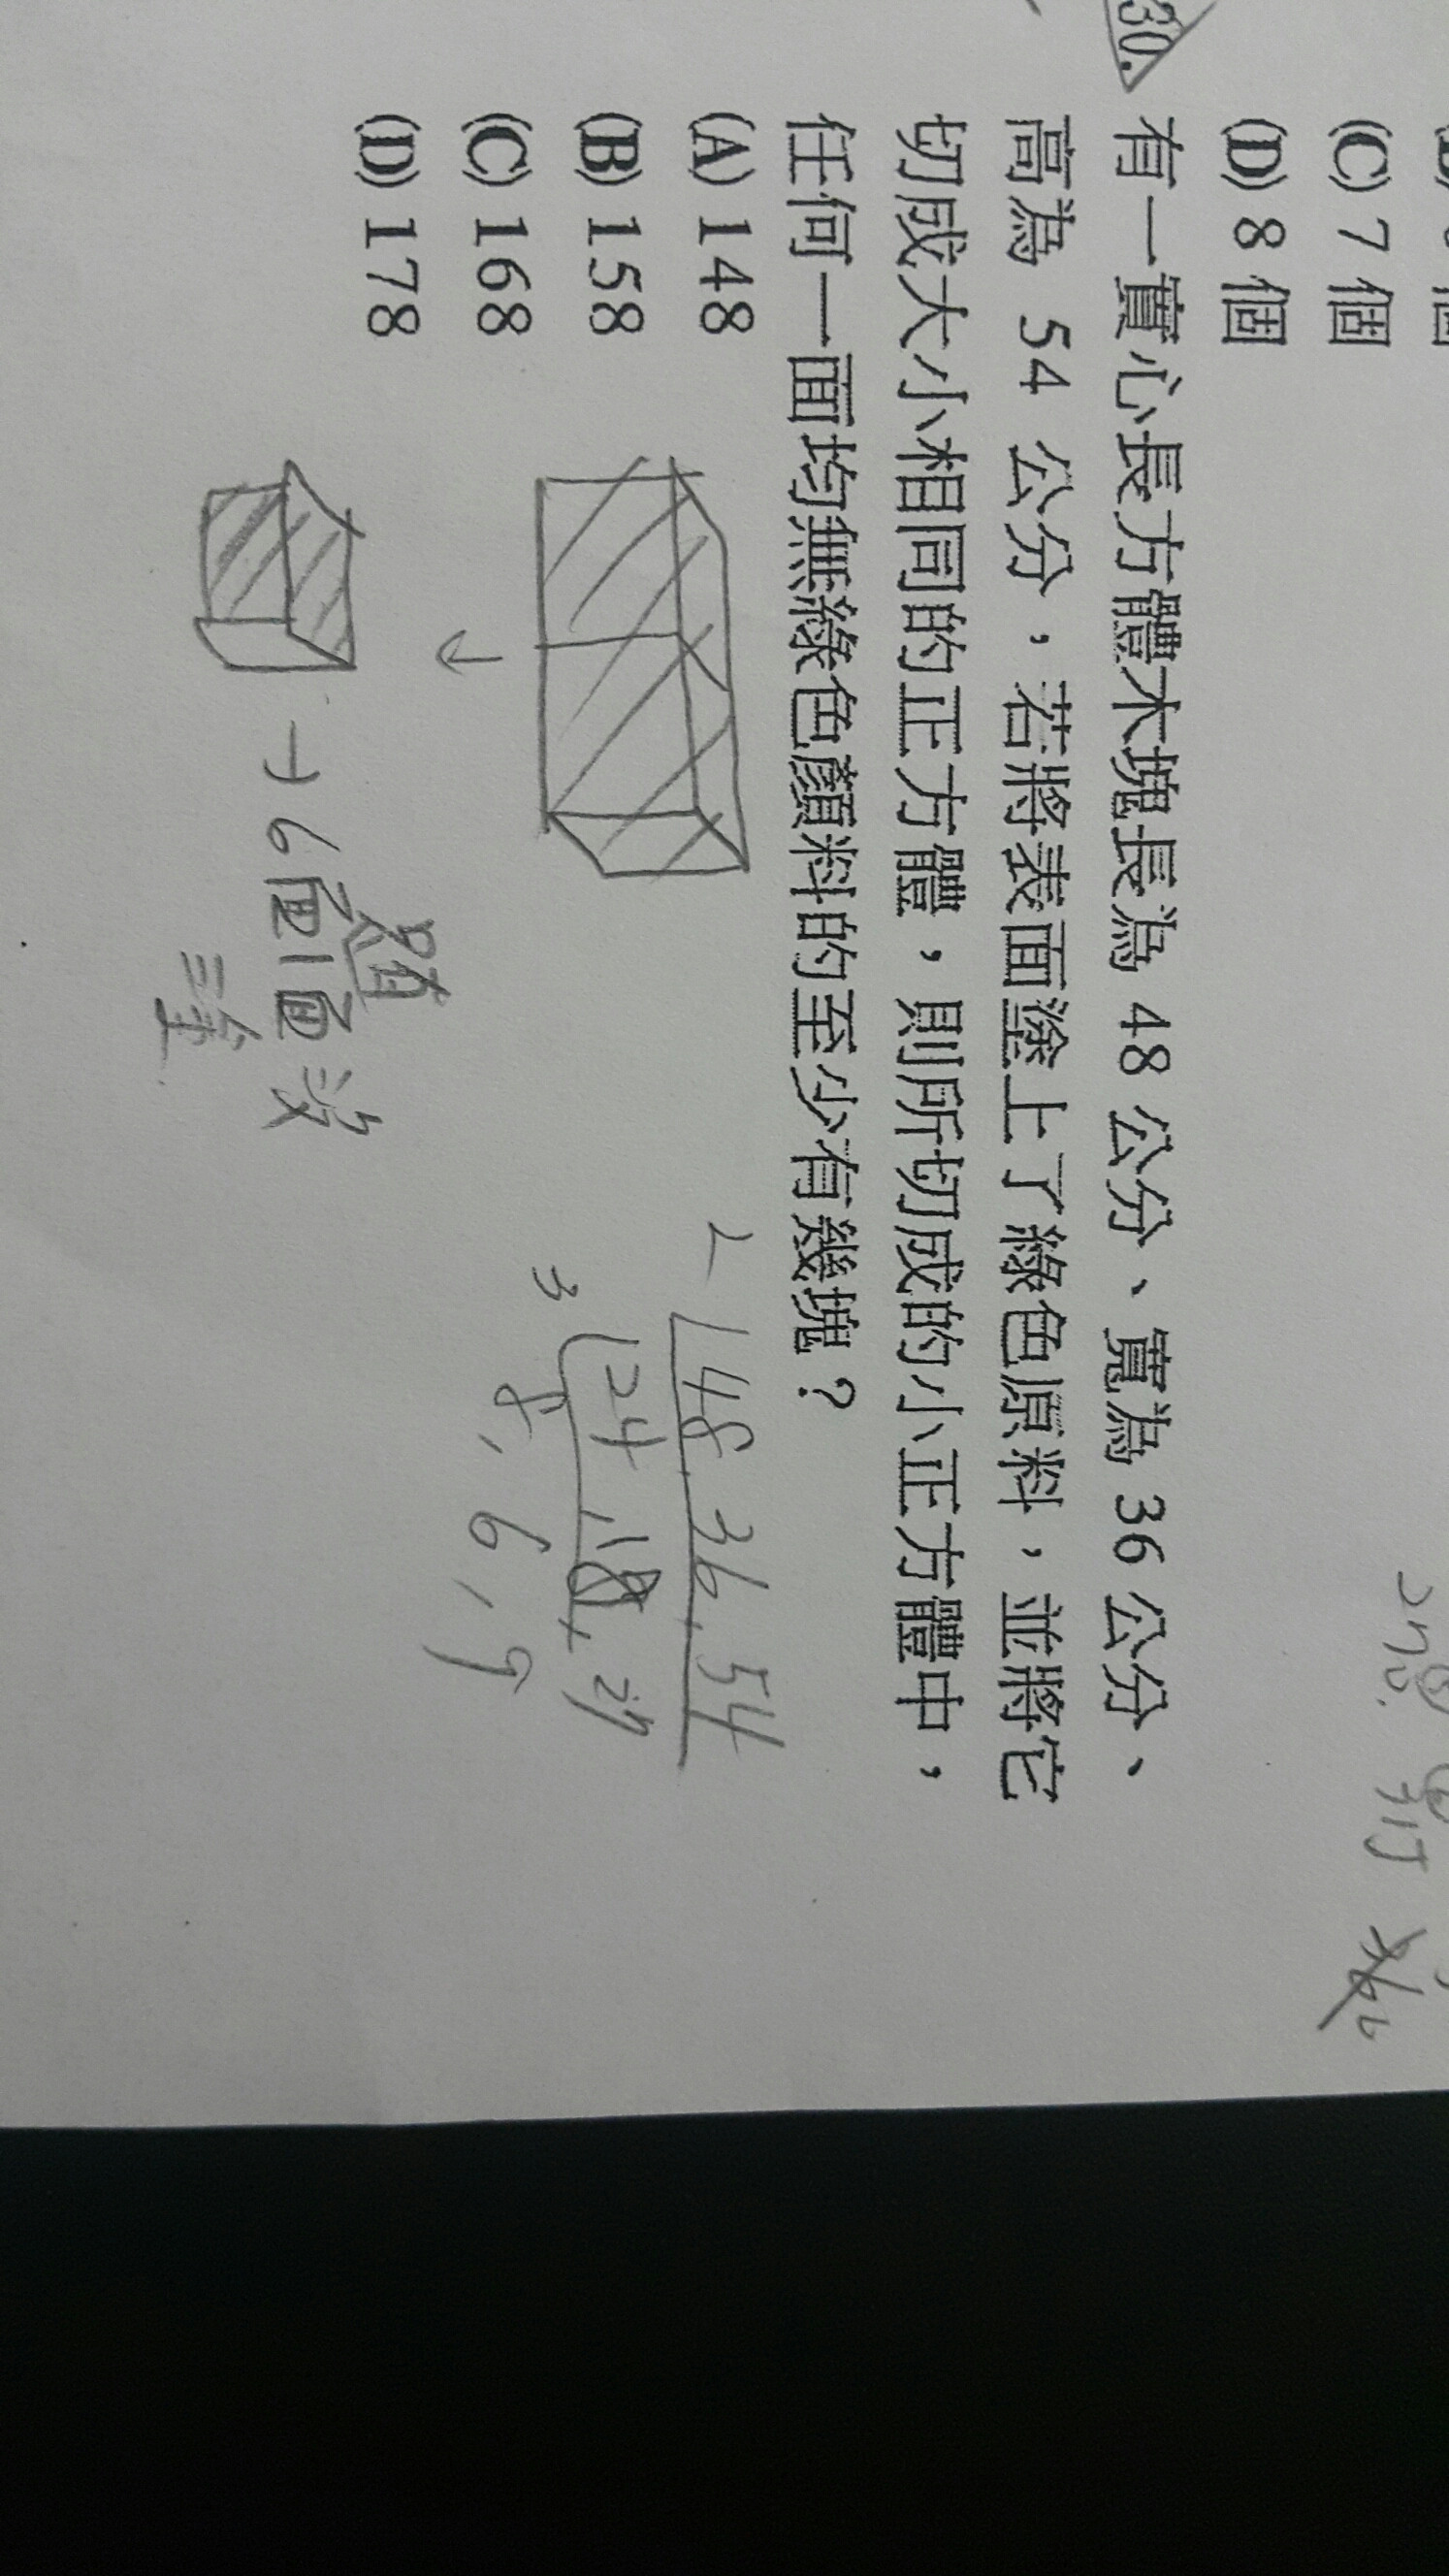 (C) 7 個
(D) 8 個
30.
有一實心長方體木塊長為 48 公分、寬為 36 公分、
高為 54 公分，若將表面塗上了綠色原料，並將它
切成大小相同的正方體，則所切成的小正方體中，
任何一面均無綠色顏料的至少有幾塊？
(A) 148
(B) 158
(C) 168
(D) 178
2 48, 36, 54
3 24, 18, 27
8, 6, 9
↓
→ 6面1面沒
塗